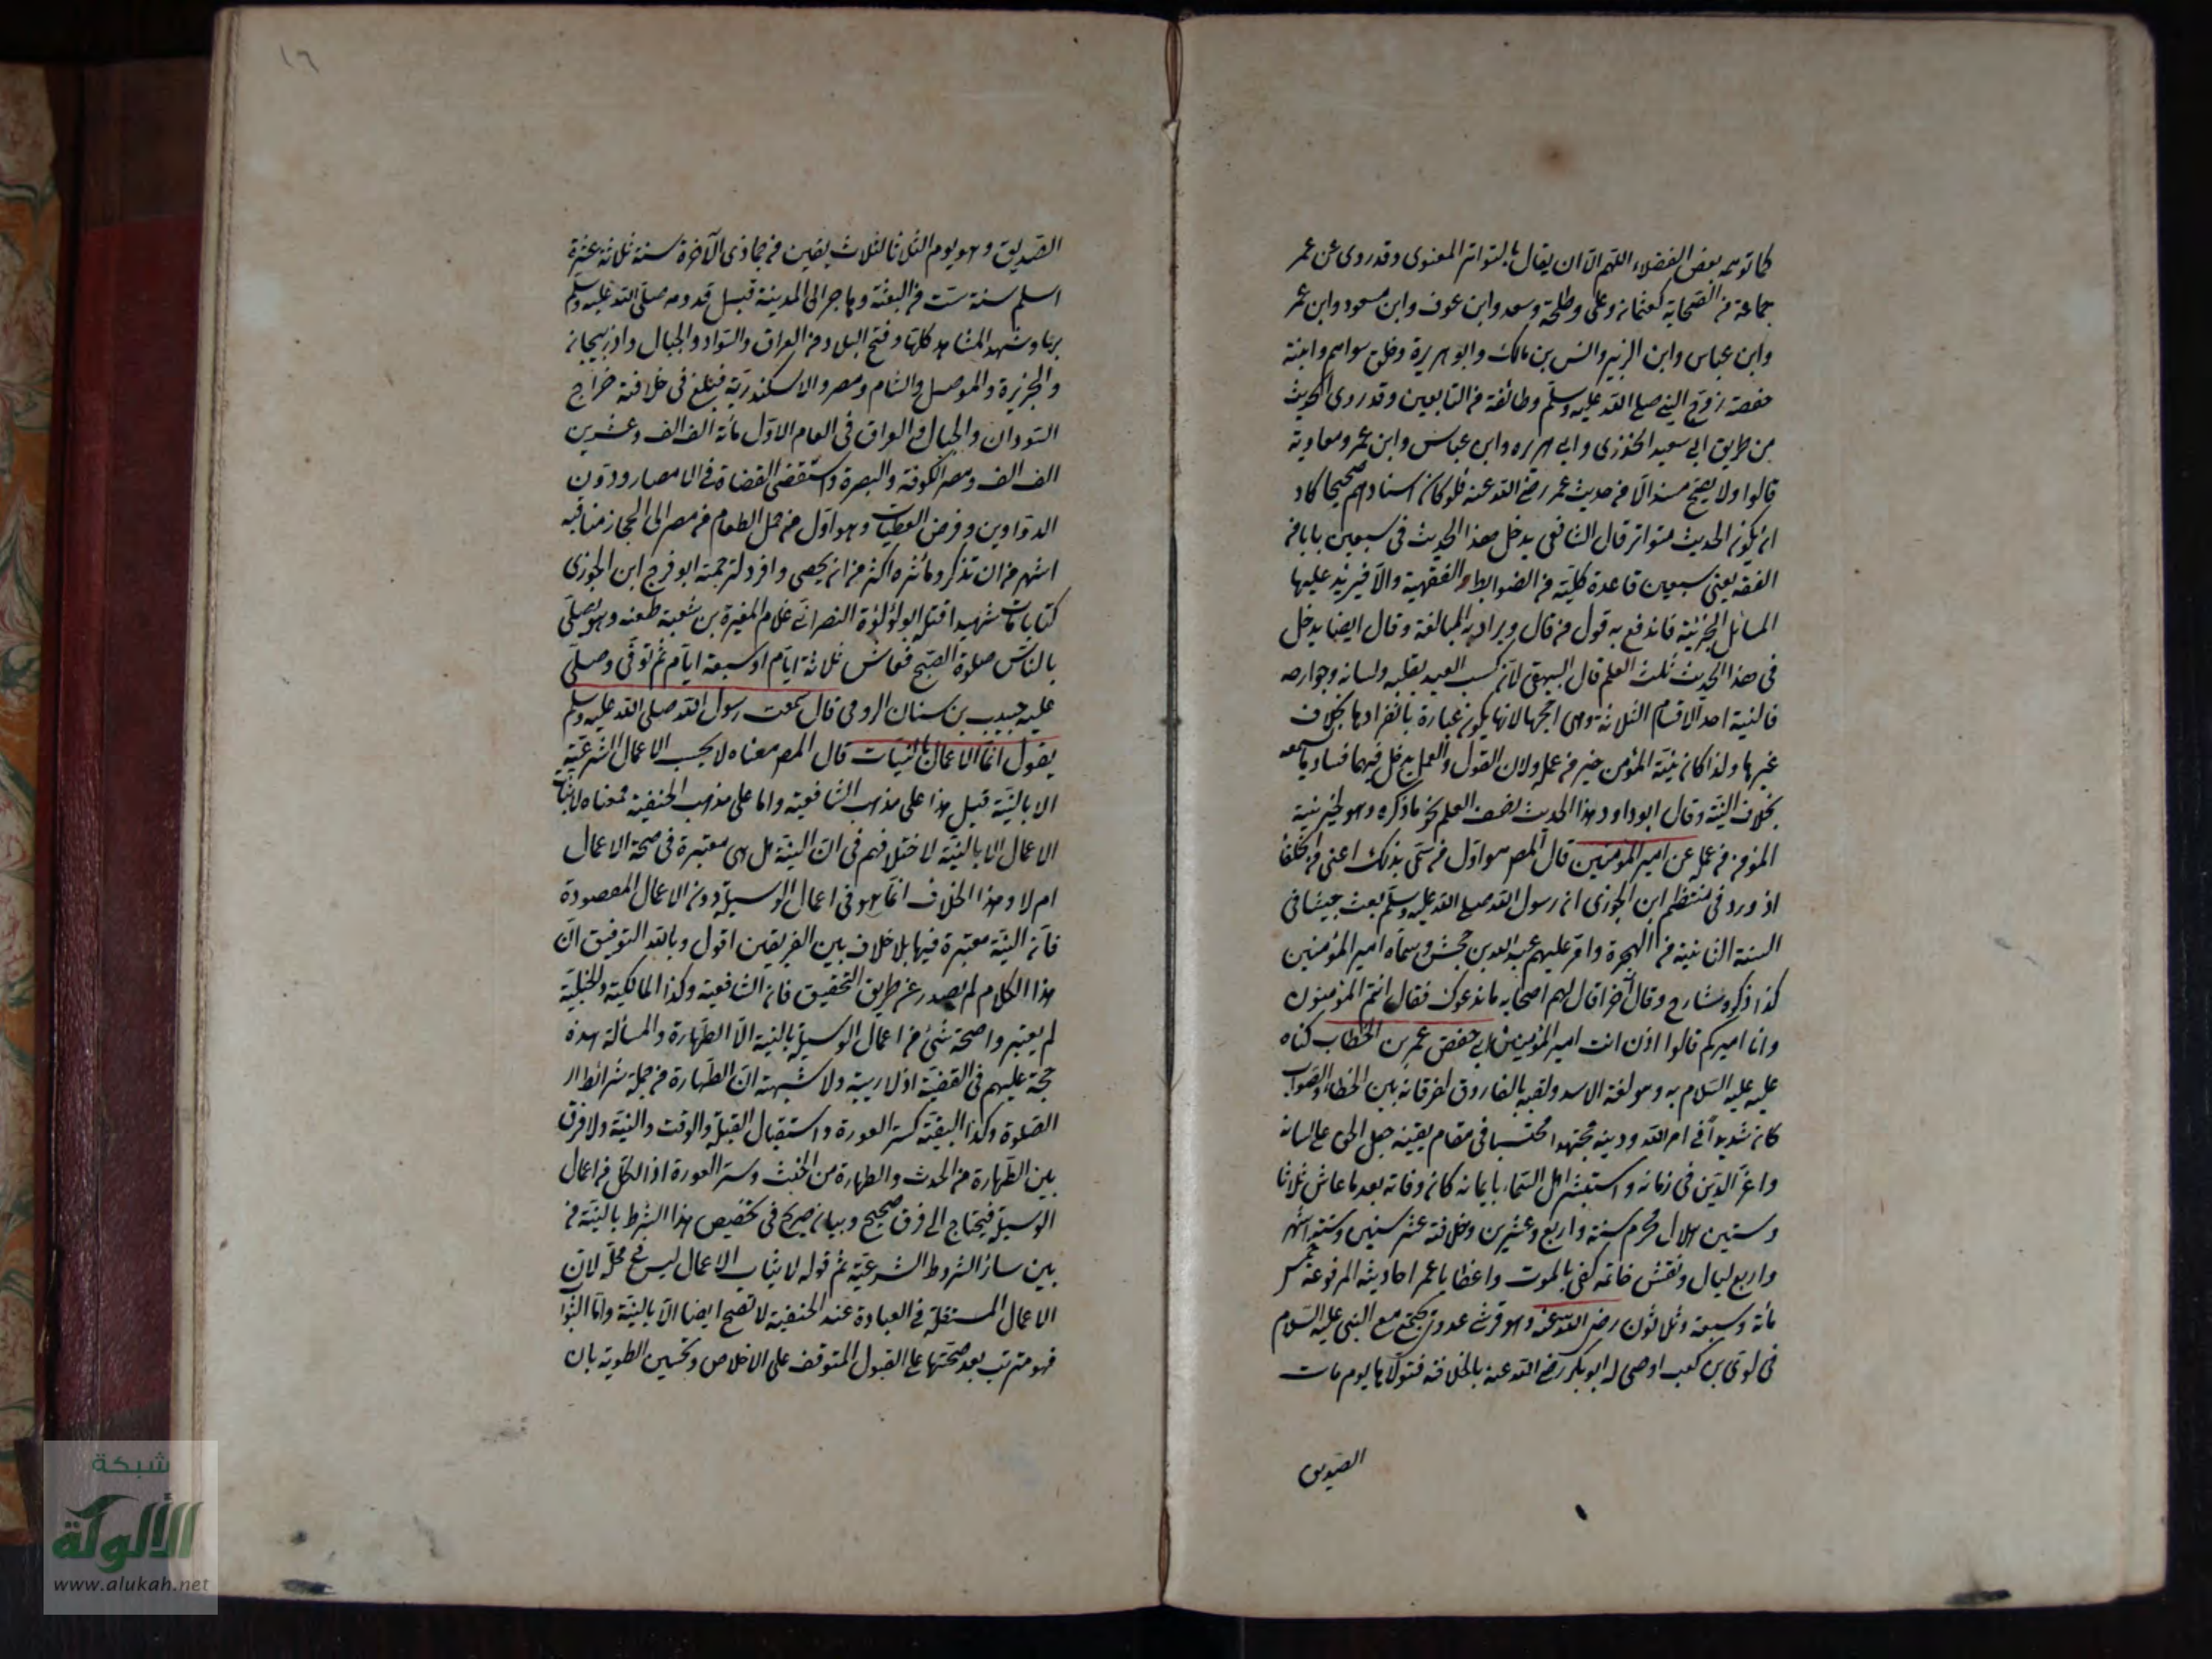 كما توهمه بعض الفضلاء اللهم الا ان يقال بالتواتر المعنوى وقد روى عن عمر
جماعة من الصحابة كعثمان وعلى وطلحة وسعد وابن عوف وابن مسعود وابن عمر
وابن عباس وابن الزبير وانس بن مالك وابو هريرة وخلق سواهم وابنة
حفصة زوج النبى صلى الله عليه وسلم وطائفة من التابعين وقد روى الحديث
من طريق ابى سعيد الخدرى وابى هريره وابن عباس وابن عمر ومعاوية
قالوا ولا يصح مسندا الا من حديث عمر رضى الله عنه فلو كان اسنادهم صحيحا كاد
ان يكون الحديث متواتر قال الشافعى يدخل هذا الحديث فى سبعين بابا من
الفقه يعنى سبعين قاعدة كلية من الضوابط الفقهية والا فيزيد عليها
المسائل الجزئية فاندفع به قول من قال ويراد به المبالغة وقال ايضا يدخل
فى هذا الحديث ثلث العلم قال البيهقى لان كسب العبد بقلبه ولسانه وجوارحه
فالنية احد الاقسام الثلاثة وهى ارجحها لانها يكون عبارة بانفرادها بخلاف
غيرها ولذا كان نية المؤمن خير من عمله ولان القول والعمل يدخل فيهما فساد
بخلاف النية وقال ابو داود هذا الحديث نصف العلم نحو ما ذكره وهو لخير نية
المؤمن من عمله عن امير المؤمنين قال المص هو اول من سمى بذلك اعنى من الخلفا
اذ ورد فى منتظم ابن الجوزى ان رسول الله صلى الله عليه وسلم بعث جيشا فى
السنة الثانية من الهجرة وامر عليهم عبد الله بن جحش وسماه امير المؤمنين
كذا ذكره شارح وقال آخر قال لهم اصحابه ما ندعوك فقال انتم المؤمنون
وانا اميركم قالوا اذن انت امير المؤمنين ابى حفص عمر بن الخطاب كناه
عليه عليه السلام به وهو لغة الاسد ولقبه بالفاروق لفرقانه بين الخطأ والصواب
كان شديدا فى امر الله ودينه مجتهدا محتسبا فى مقام يقينه جعل الحق على لسانه
واعز الدين فى زمانه واستبشر اهل السماء بايمانه كان وفاته بعد ما عاش ثلاثا
وستين هلال محرم سنة واربع وعشرين وخلافته عشر سنين وستة اشهر
واربع ليال ونقش خاتمه كفى بالموت واعظا يا عمر احاديثه المرفوعة خمس
مائة وسبعة وثلاثون رضى الله عنه وهو قرشى عدوى يجتمع مع النبى عليه السلام
فى لوى بن كعب اوصى له ابو بكر رضى الله عنه بالخلافة فتولاها يوم مات
الصديق
١٦
الصديق وهو يوم الثلاثا لثلاث بقين من جمادى الآخرة سنة ثلاثة عشرة
اسلم سنة ست من البعثة وهاجر الى المدينة قبل قدومه صلى الله عليه وسلم
بريا وشهد المشاهد كلها وفتح البلاد من العراق والسواد والجبال واذربيجان
والجزيرة والموصل والشام ومصر والاسكندرية فبلغ فى خلافته خراج
السودان والجبال والعراق فى العام الاول مائة الف الف وعشرين
الف الف ومصر الكوفة والبصرة واستقضى القضاة فى الامصار ودون
الدواوين وفرض العطيات وهو اول من حمل الطعام من مصر الى الحجاز مناقبه
اشهر من ان تذكر ومآثره اكثر من ان يحصى وافرد لترجمته ابو فرج ابن الجوزى
كتابا مات شهيدا قتله ابو لؤلؤة النصرانى غلام المغيرة بن شعبة طعنه وهو يصلى
بالناس صلوة الصبح فعاش ثلاثة ايام او سبعة ايام ثم توفى وصلى
عليه حبيب بن سنان الرومى قال سمعت رسول الله صلى الله عليه وسلم
يقول انما الاعمال بالنيات قال المص معناه لا يحسب الاعمال الشرعية
الا بالنية قيل هذا على مذهب الشافعية واما على مذهب الحنفية فمعناه لا يثاب
الاعمال الا بالنية لاختلافهم فى ان النية هل هى معتبرة فى صحة الاعمال
ام لا وهذا الخلاف انما هو فى اعمال الوسيلة دون الاعمال المقصودة
فان النية معتبرة فيها بلا خلاف بين الفريقين اقول وبالله التوفيق ان
هذا الكلام لم يصدر عن طريق التحقيق فان الشافعية وكذا المالكية والحنبلية
لم يعتبروا صحة شئ من اعمال الوسيلة بالنية الا الطهارة والمسألة هذه
حجة عليهم فى القضية اذ لا ريبة ولا شبهة ان الطهارة من جملة شرائط
الصلوة وكذا البقية كستر العورة واستقبال القبلة والوقت والنية ولا فرق
بين الطهارة من الحدث والطهارة من الخبث وستر العورة اذ الكل من اعمال
الوسيلة فيحتاج الى فرق صحيح وبيان صريح فى تخصيص هذا الشرط بالنية من
بين سائر الشروط الشرعية ثم قوله لا يثاب الاعمال ليس فى محله لان
الاعمال المستقلة فى العبادة عند الحنفية لا تصح ايضا الا بالنية واما الثوا
فهو مترتب بعد صحتها على القبول المتوقف على الاخلاص وتحسين الطوية بان
شبكة
الألوكة
www.alukah.net